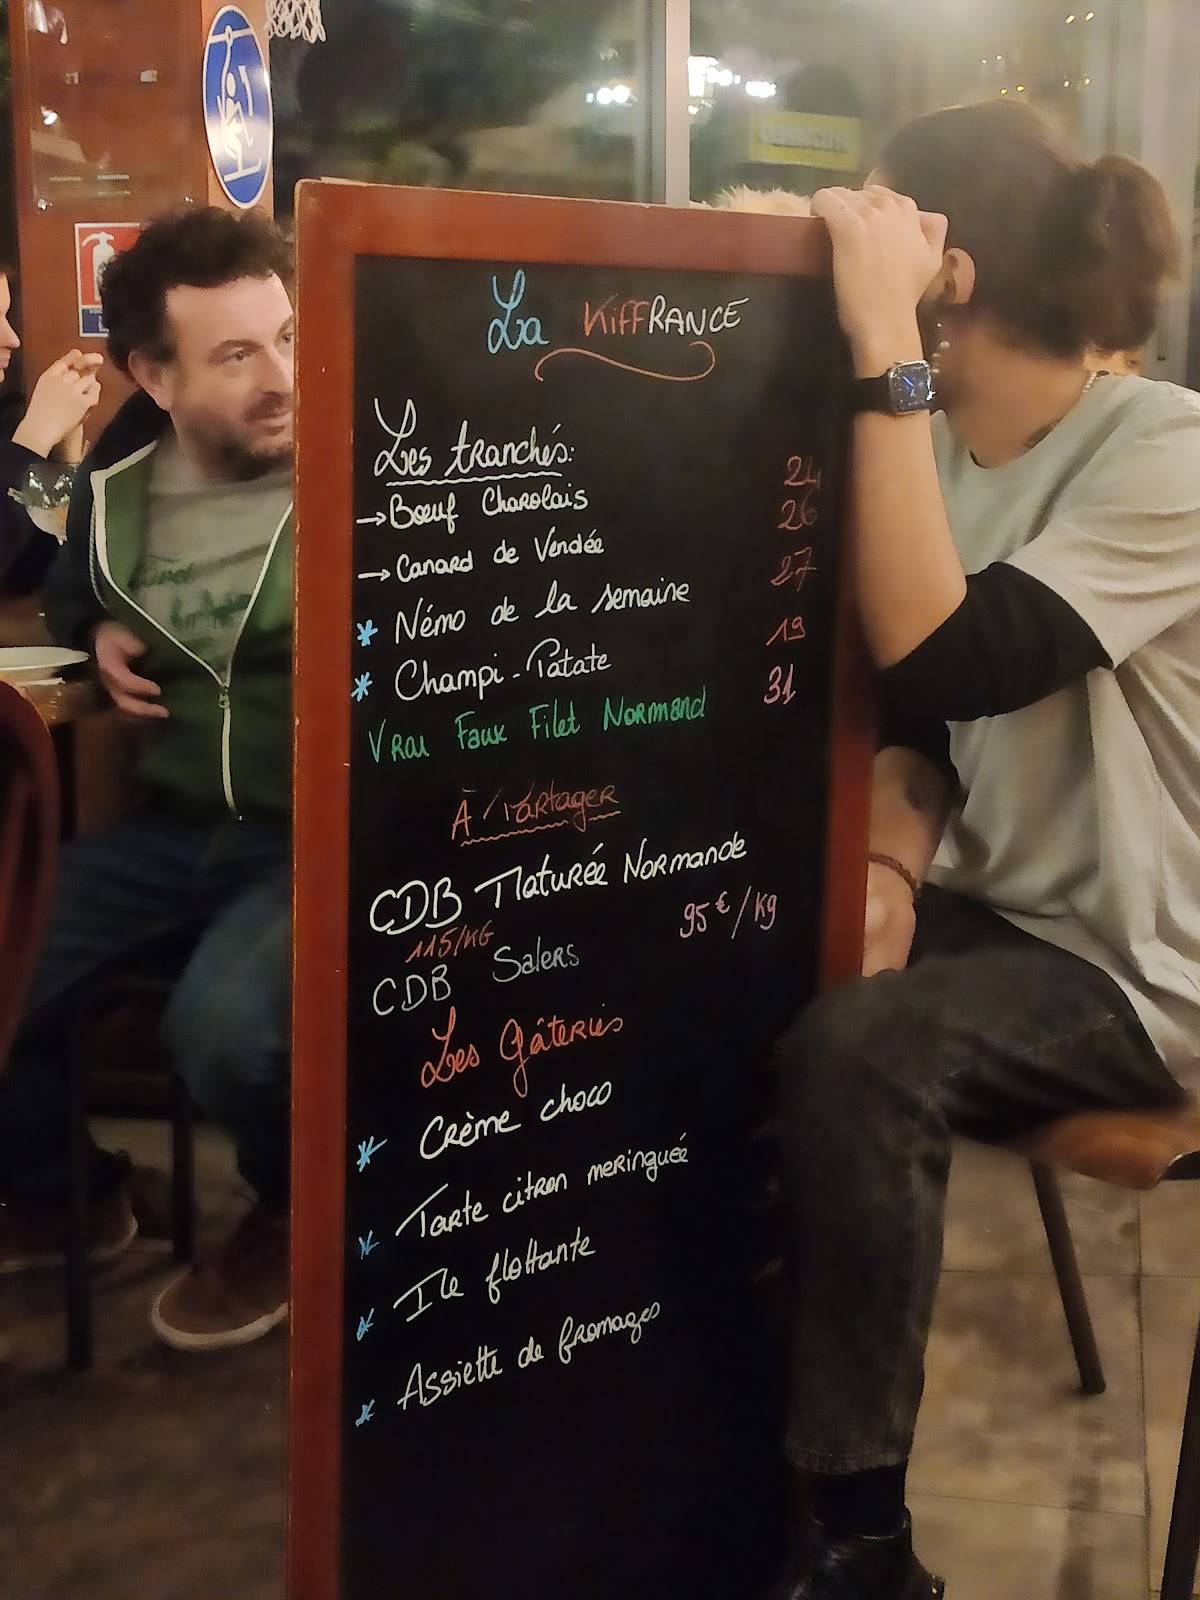 La KiffRANCE
Les tranchés:
→ Bœuf Charolais 24
→ Canard de Vendée 26
* Némo de la semaine 27
* Champi-Patate 19
Vrai Faux Filet Normand 31
À Partager
CDB Maturée Normande
115/KG
CDB Salers 95€/Kg
Les Gâteries
* Crème choco
* Tarte citron meringuée
* Ile flottante
* Assiette de fromages